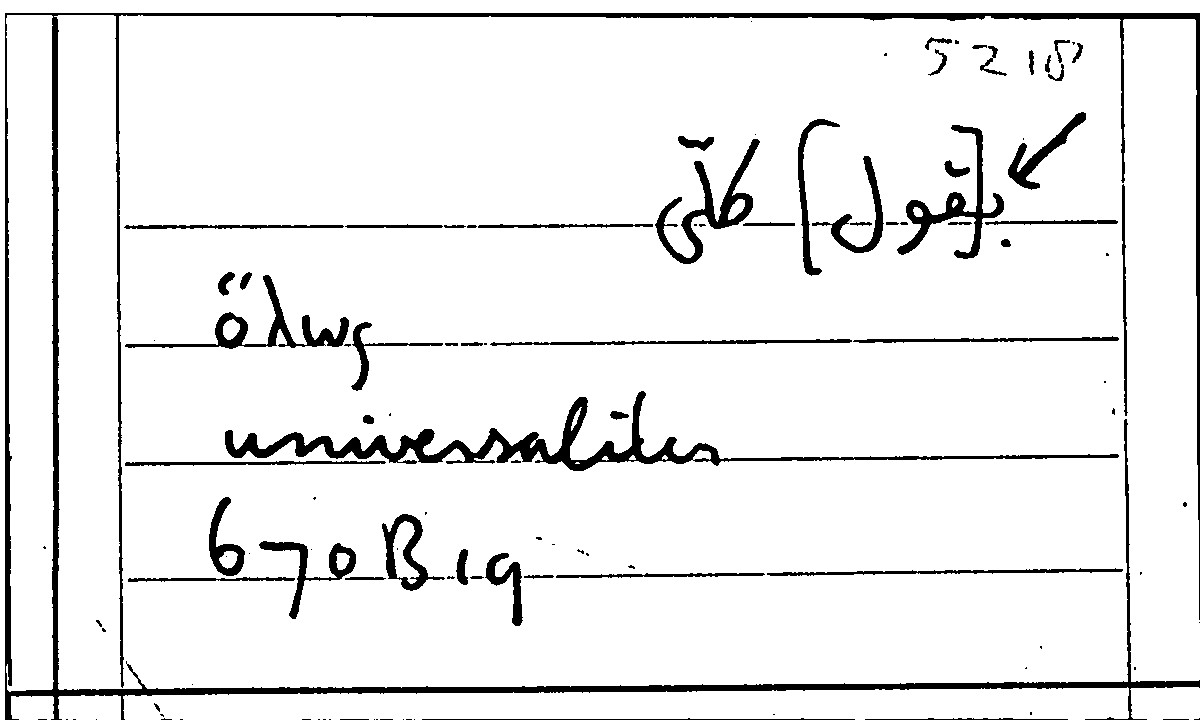 5218
ب[قول] كلّي
ὅλως
universaliter
670B19